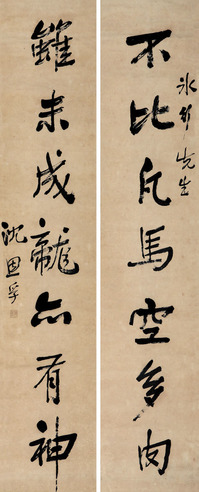 不比凡馬空多肉
冰舒先生
雖未成龍亦有神
沈恩孚